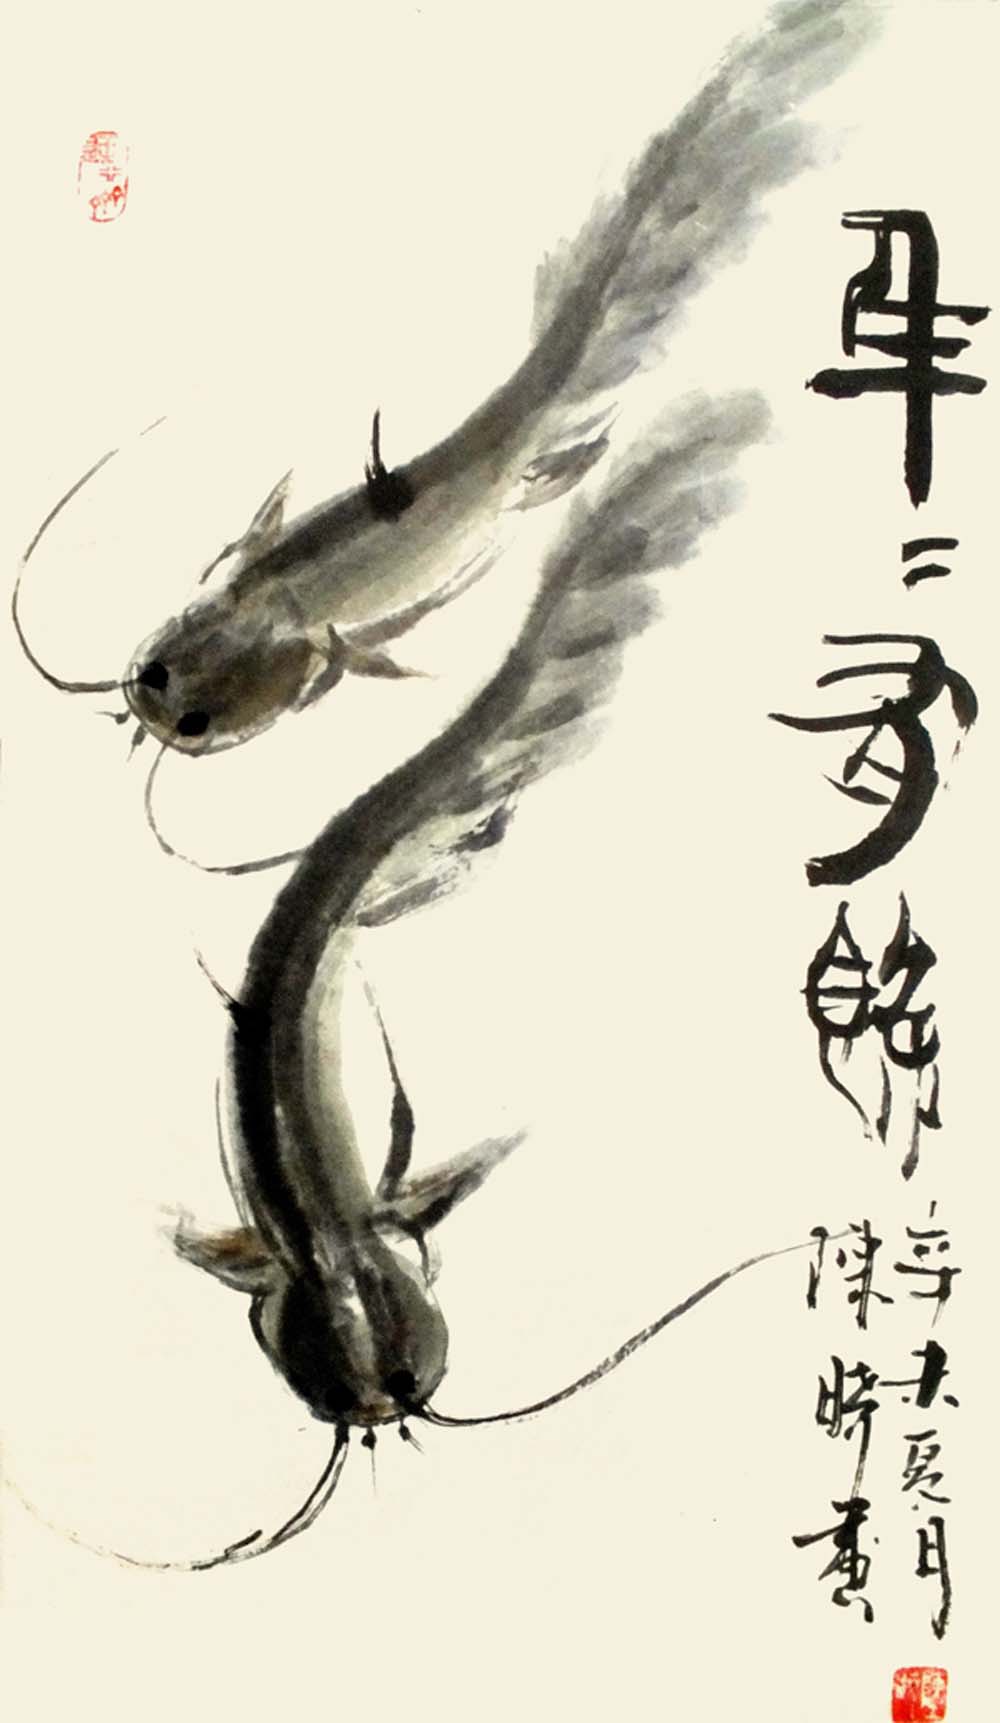 年〻有餘
辛未夏月
陳畫